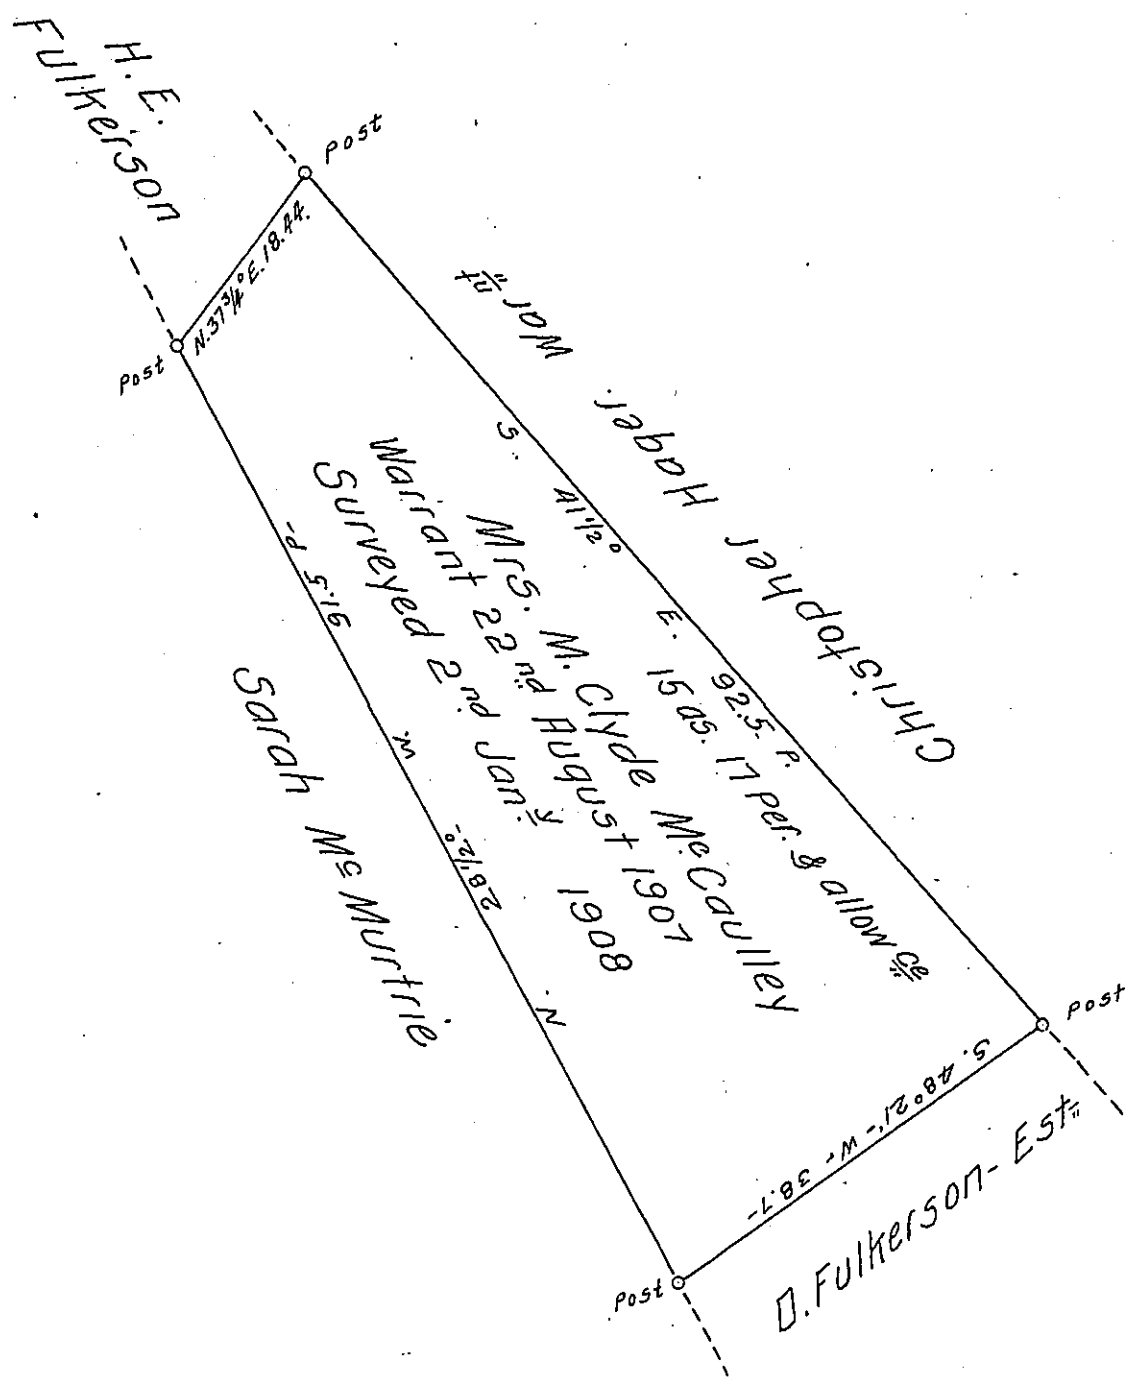 H. E.
Fulkerson
Post
N. 37 3/4° E. 18.44.
Post
Christopher Hager. War nt
S. 41 1/2° E. 92.5- P.
15 as. 17 per. & allow ce
Mrs. M. Clyde McCaulley
Warrant 22nd August 1907
Surveyed 2nd Jan.y 1908
N. 28 1/2°- W. 91.5 P-
Sarah Mc Murtrie
Post
S. 48° 21'- W- 38.7-
D. Fulkerson- Est
Post